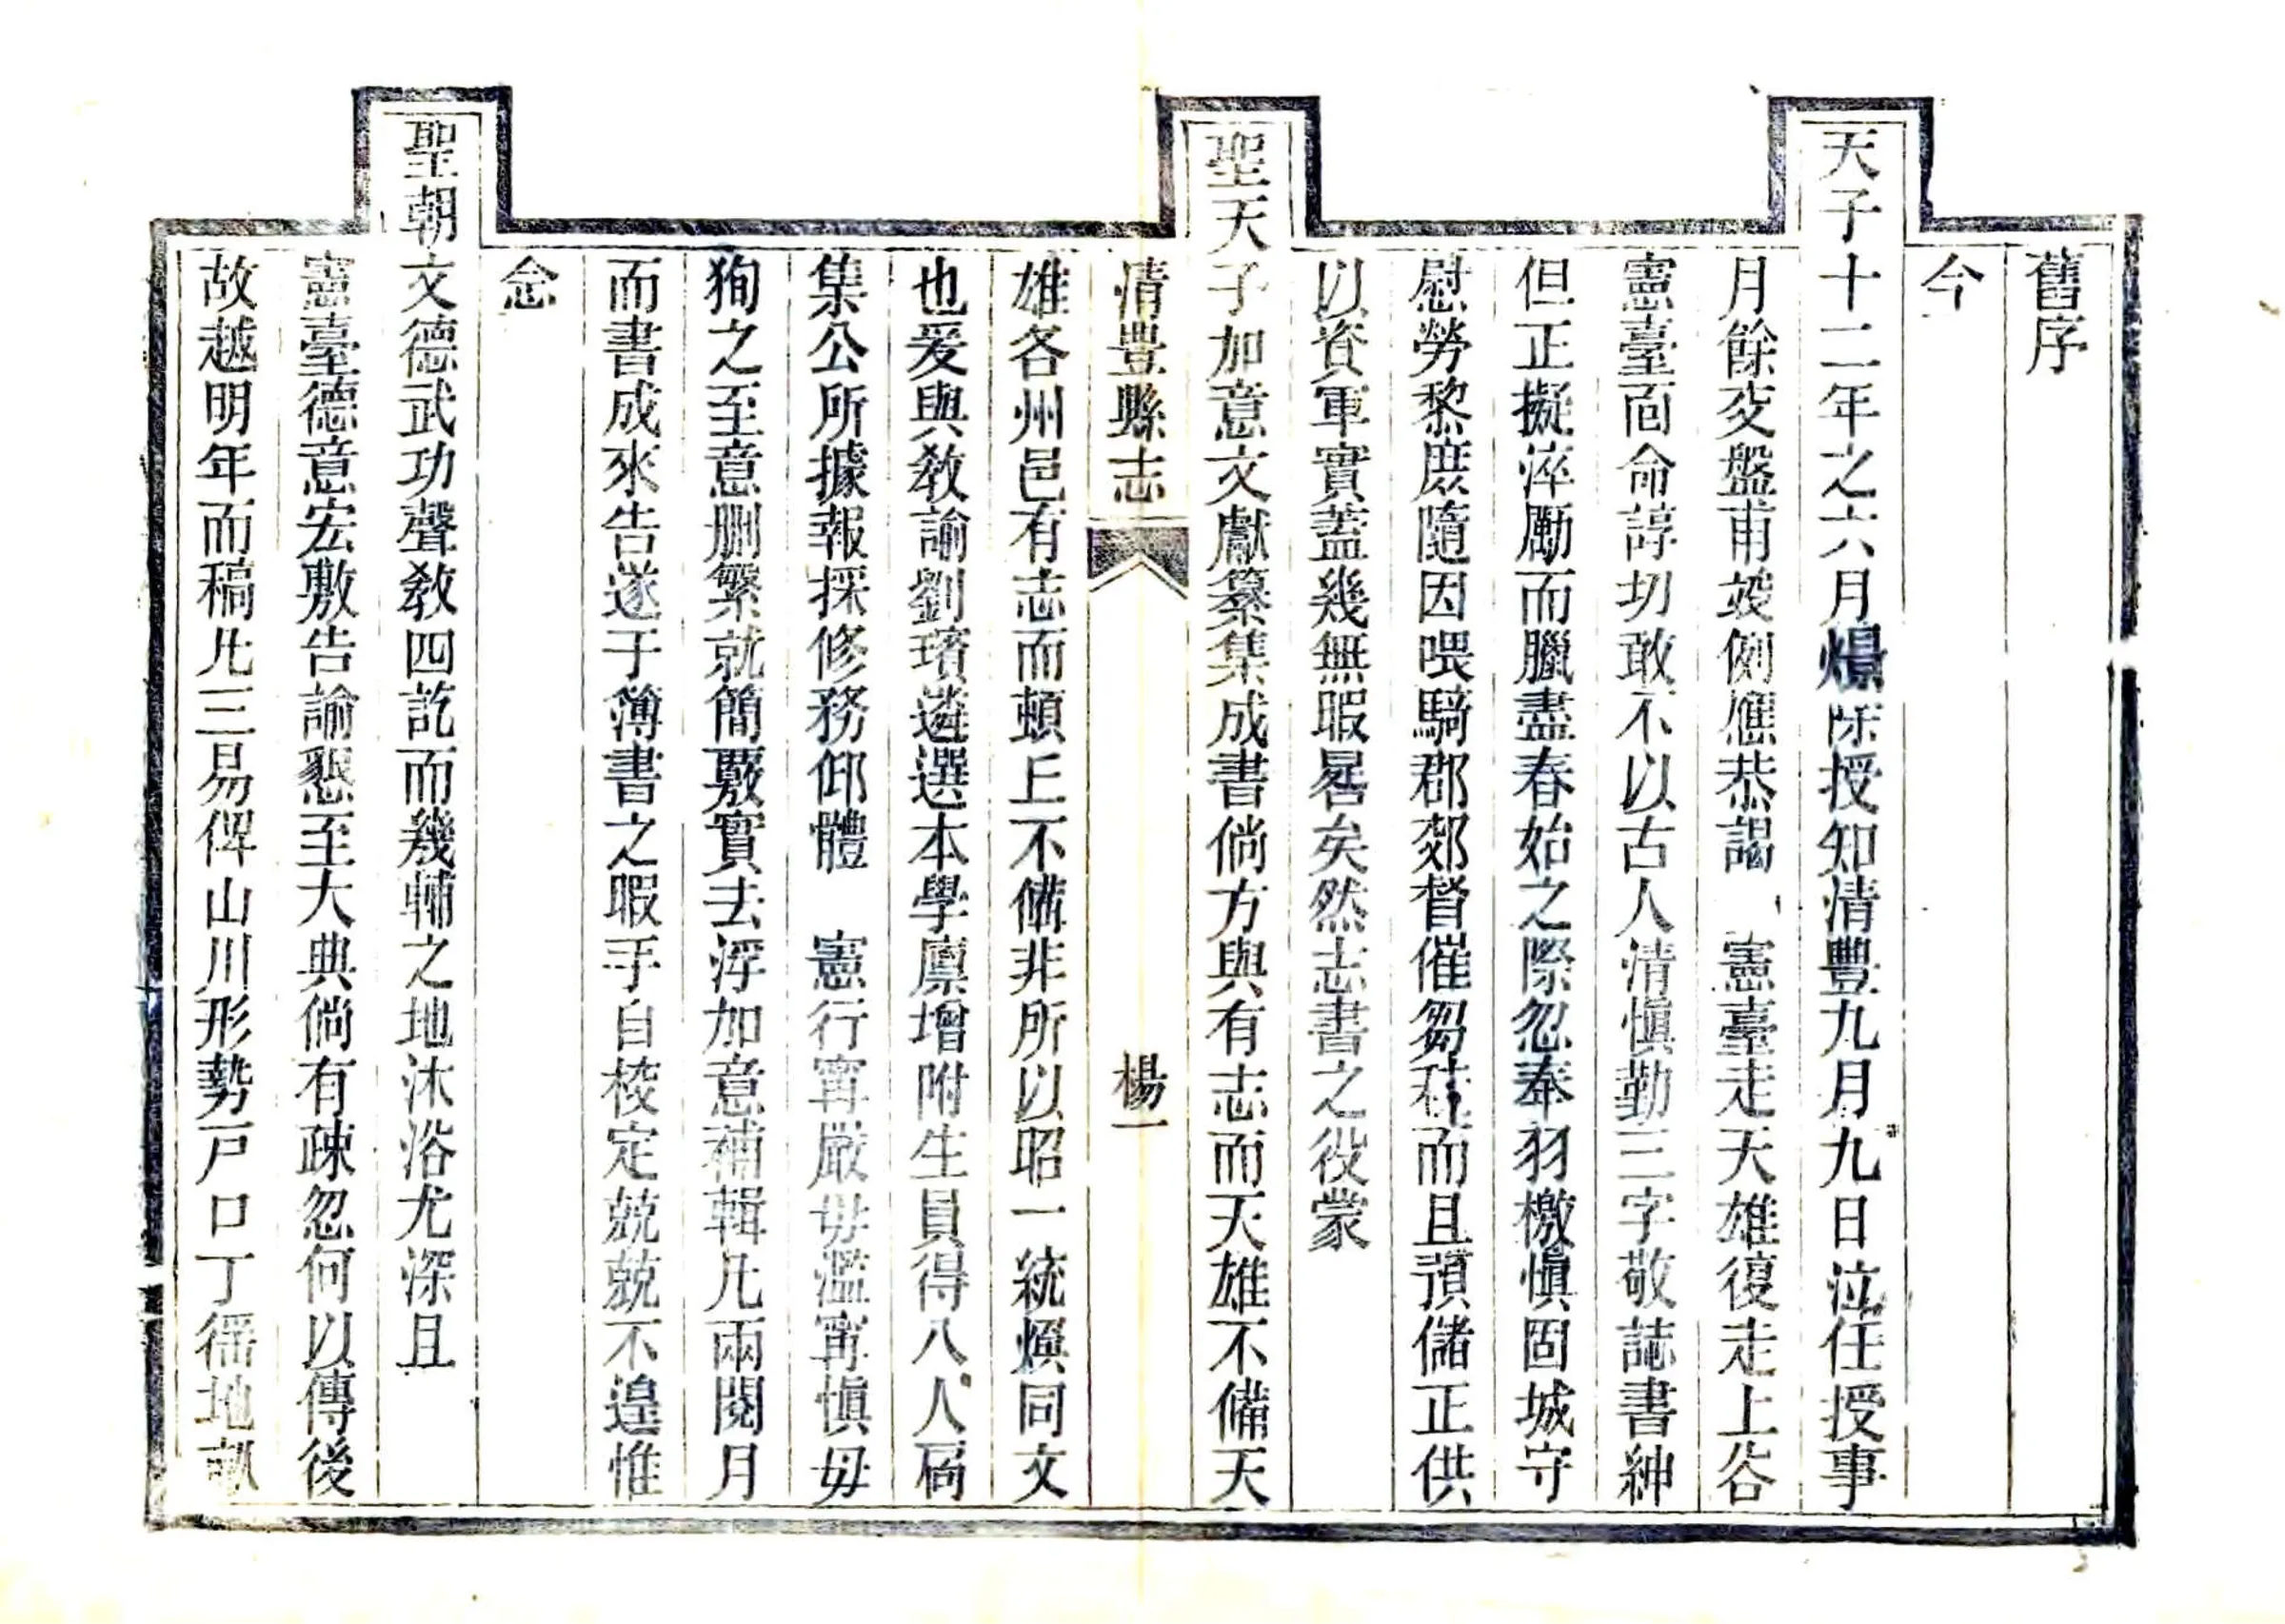 舊序
今
天子十二年之六月燝除授知清豐九月九日涖任授事
月餘交盤甫竣例應恭謁　憲臺走天雄復走上谷
憲臺面命諄切敢不以古人清慎勤三字敬誌書紳
但正擬淬勵而臘盡春始之際忽奉羽檄慎固城守
慰勞黎庶隨因喂騎郡郊督催芻秣而且預儲正供
以資軍實蓋幾無暇晷矣然志書之役蒙
聖天子加意文獻纂集成書倘方輿有志而天雄不備天
清豐縣志
楊一
雄各州邑有志而頓上不備非所以昭一統煥同文
也爰與敎諭劉璸遴選本學廪增附生員得八人局
集公所據報採修務仰體　憲行寧嚴毋濫寧慎毋
狥之至意删繁就簡覈實去浮加意補輯凡兩閱月
而書成來告遂于簿書之暇手自校定兢兢不遑惟
念
聖朝文德武功聲敎四訖而畿輔之地沐浴尤深且
憲臺德意宏敷告諭懇至大典倘有疎忽何以傳後
故越明年而稿凡三易俾山川形勢戸口丁徭地畝